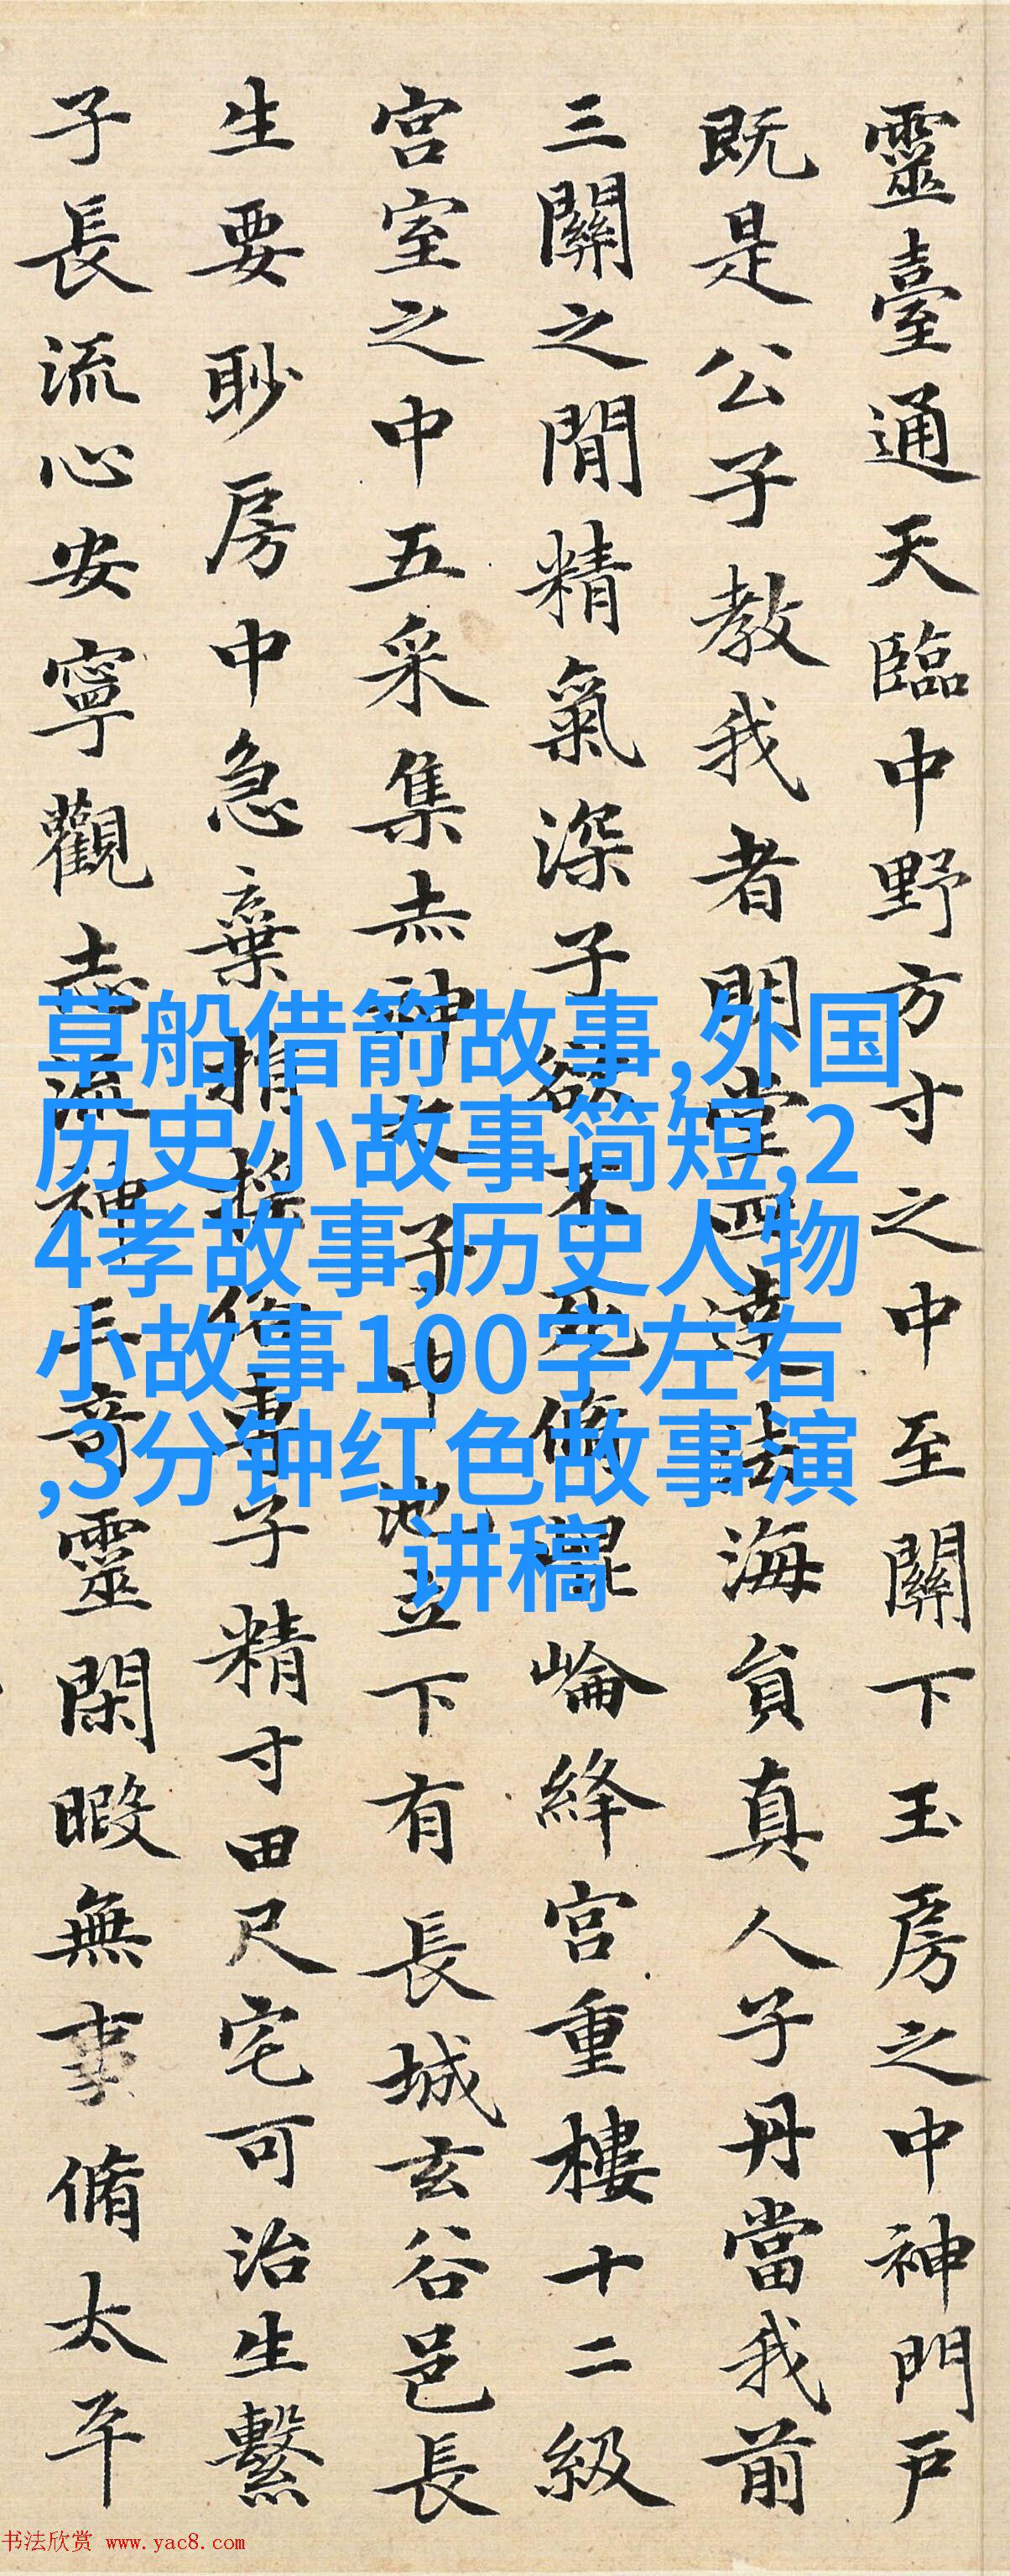 靈臺通天臨中野方寸之中至關下玉房之中神門戶
既是公子教我者明堂四達法海員真人子丹當我前
三關之間精氣深子欲不死脩崐崘絳宮重樓十二級
宮室之中五采集赤神之子中池立下有長城玄谷邑長
生要眇房中急棄捐搖俗專子精寸田尺宅可治生繫
子長流心安寧觀志流神三奇靈閑暇無事脩太平
草船借箭故事,外国
历史小故事简短,2
4孝故事,历史人物
小故事100字左右
,3分钟红色故事演
讲稿
书法欣赏 www.yac8.com